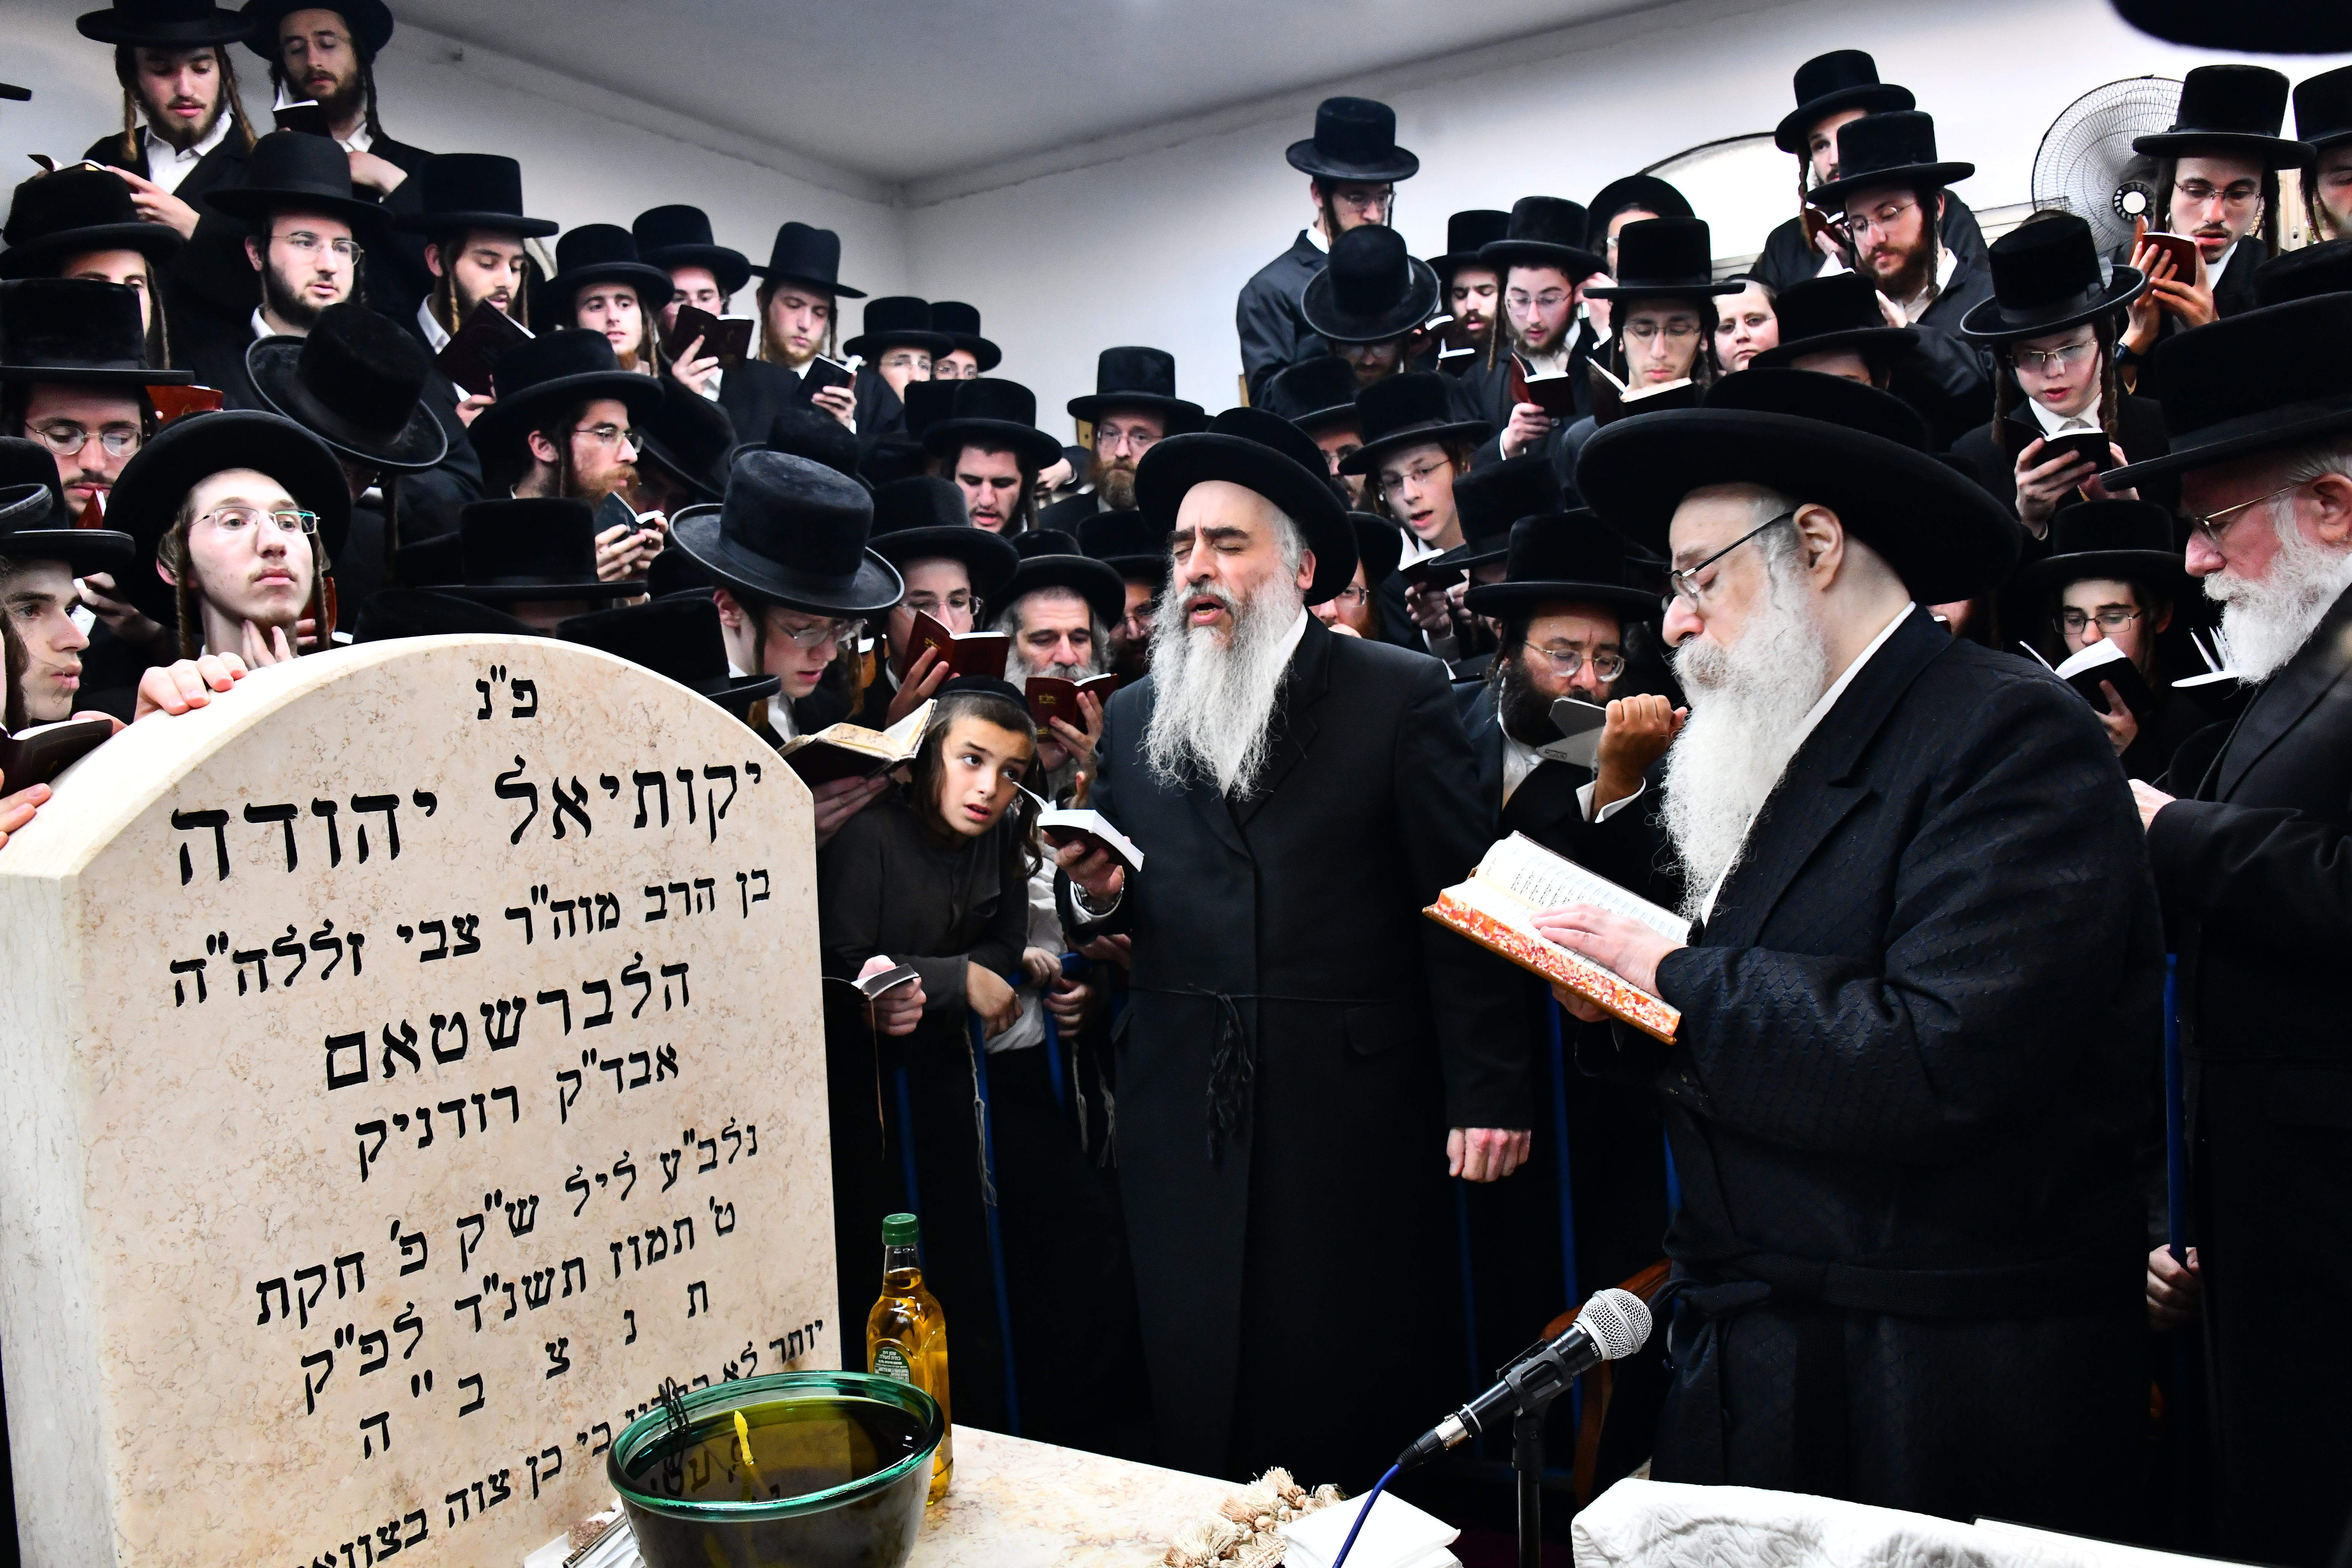 פ"נ
יקותיאל יהודה
בן הרב מוה"ר צבי זללה"ה
הלברשטאם
אבד"ק רודניק
נלב"ע ליל ש"ק פ' חקת
ט' תמוז תשנ"ד לפ"ק
ת נ צ ב "ה
יותר לא
כי כן צוה